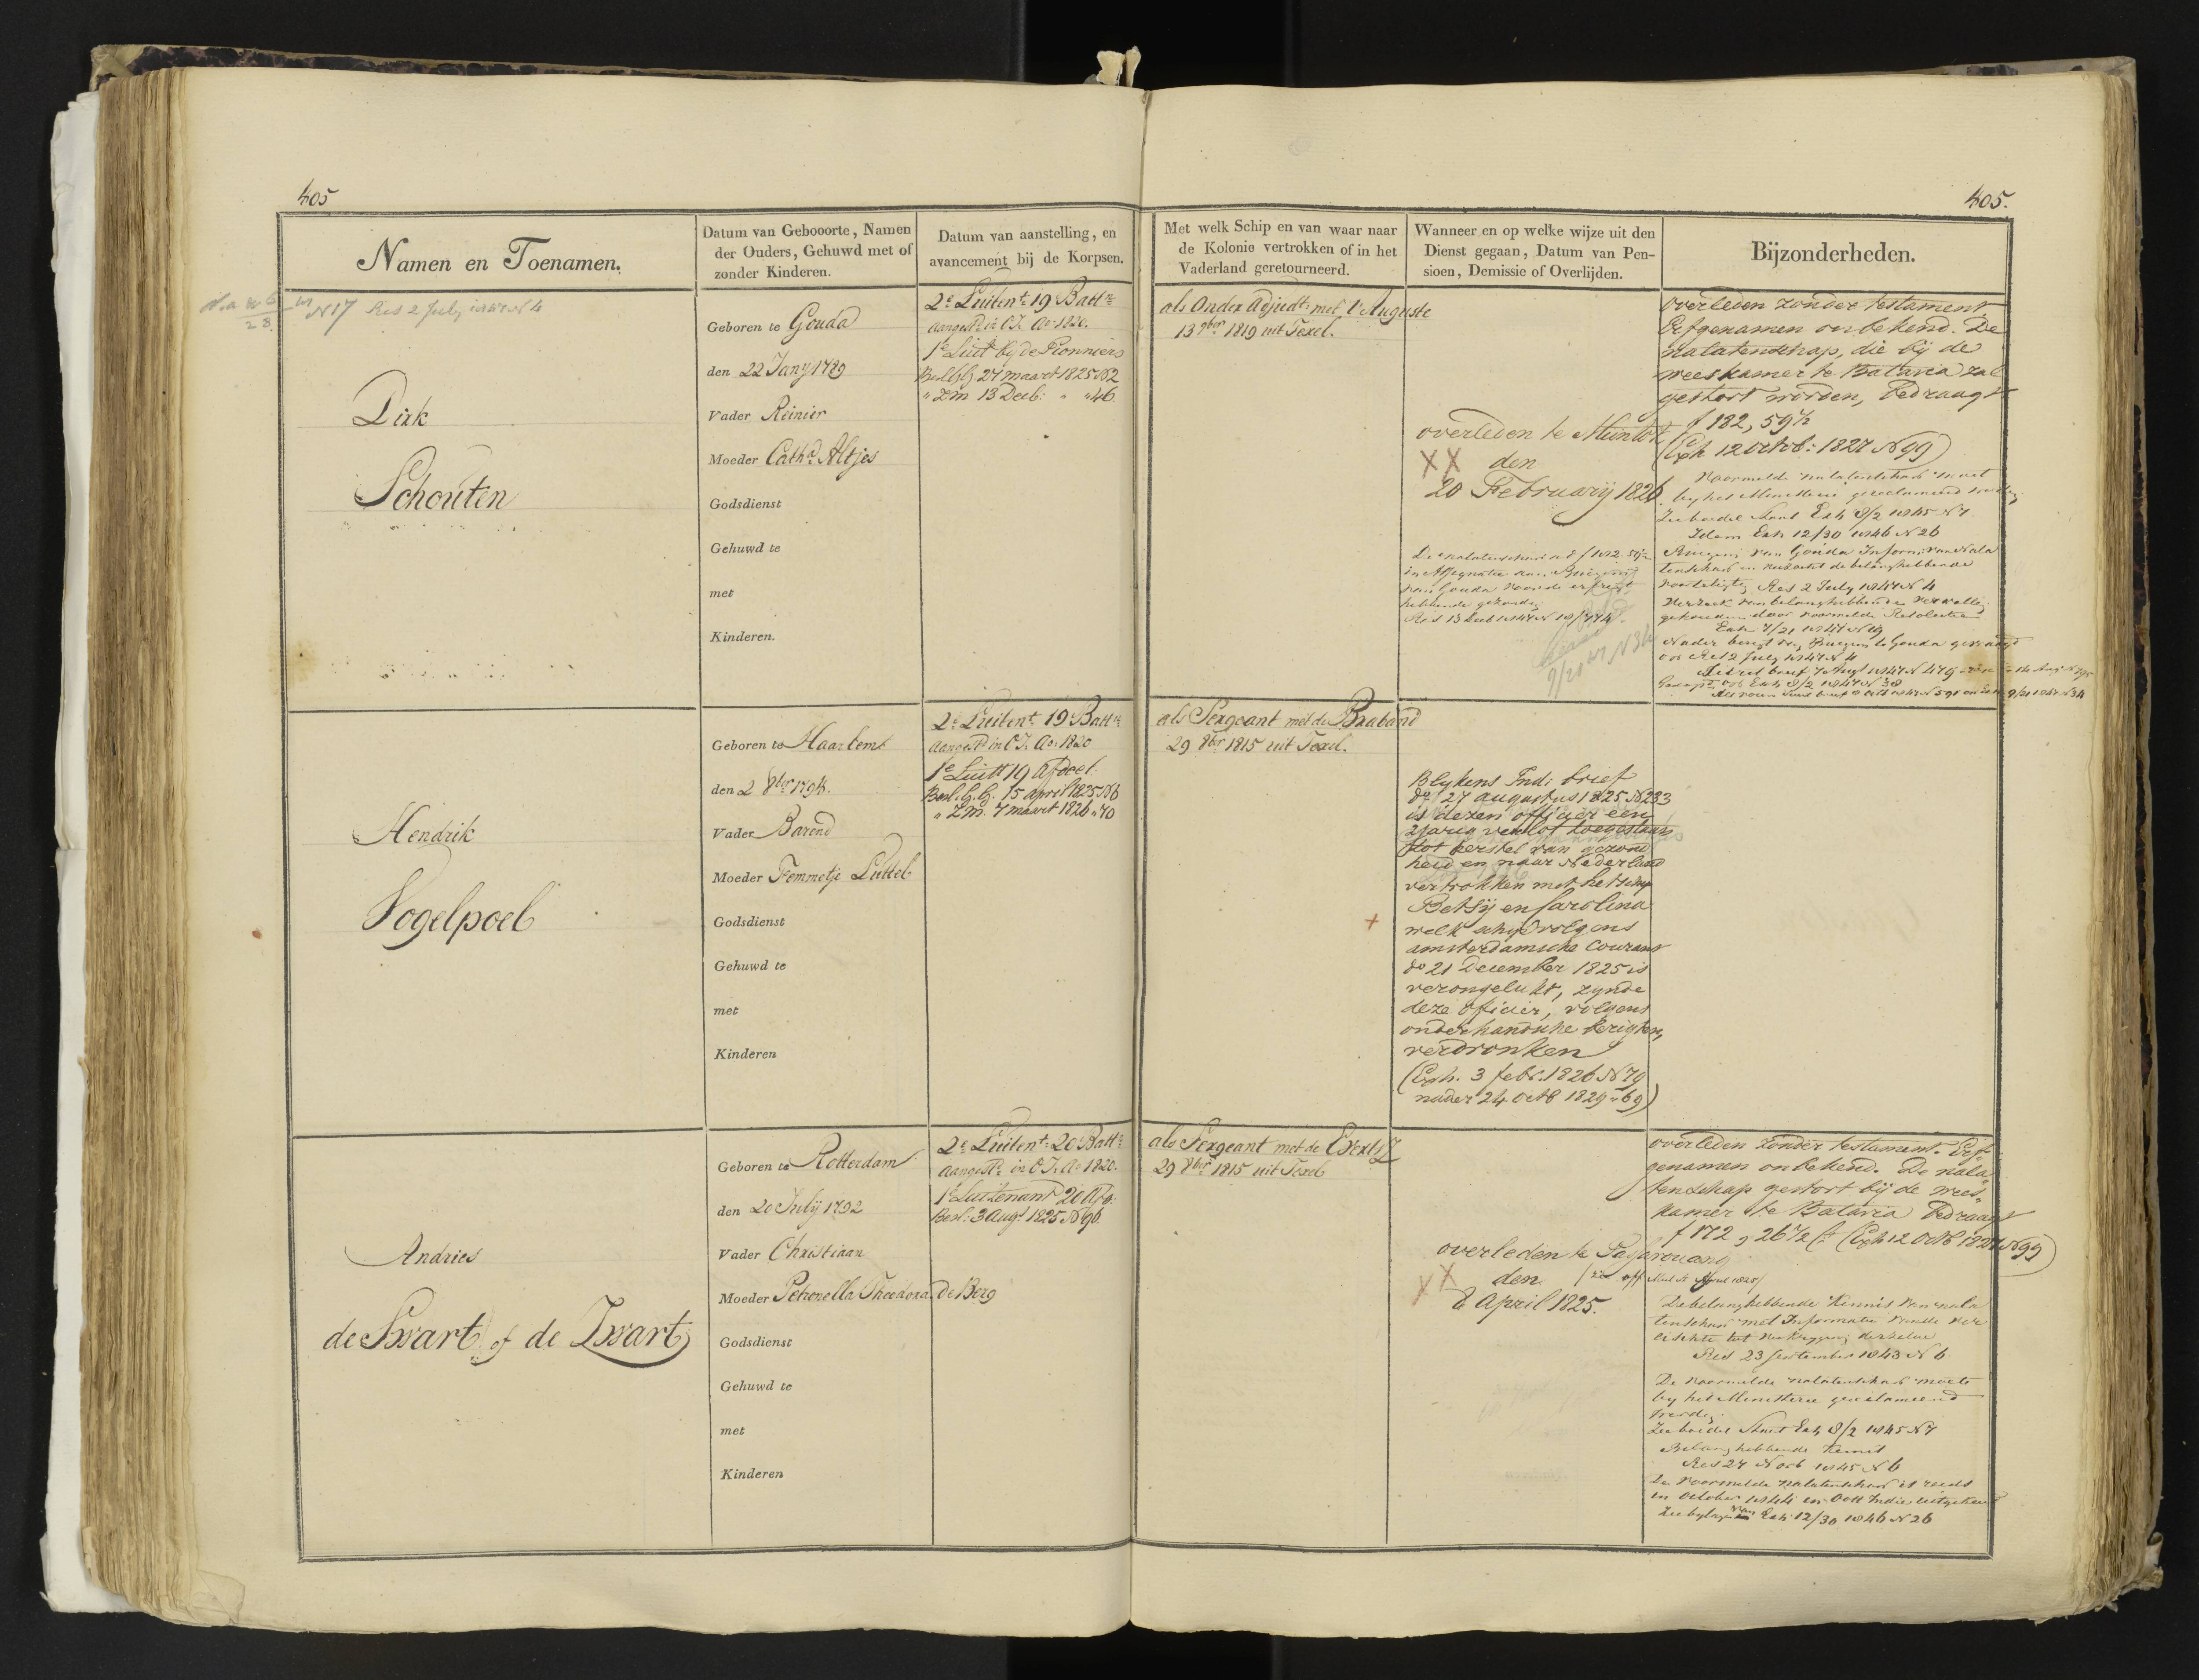 405
405.
Namen en Toenamen.
Datum van Gebooorte, Namen
der Ouders, Gehuwd met of
zonder Kinderen.
Datum van aanstelling, en
avancement bij de Korpsen.
Met welk Schip en van waar naar
de Kolonie vertrokken of in het
Vaderland geretourneerd.
Wanneer en op welke wijze uit den
Dienst gegaan, Datum van Pen-
sioen, Demissie of Overlijden.
Bijzonderheden.
N17 Res 2 July 1847 N 4
Dirk
Schouten
Geboren te Gouda
den 22 Jany 1789
Vader Reinier
Moeder Catha Altjes
Godsdienst
Gehuwd te
met
Kinderen.
2e Luitent 19 Battn
aangestd in O.I. Ao 1820.
1e Luit bij de Pionniers
Besl G.G. 27 maart 1825 N82
" Z.M 13 Decb: " " 46
als Onder Adjudt met l'Auguste
13 9ber 1819 uit Texel.
overleden te Muntok
XX den
20 February 1826
Res 13 Decb 1847 N 10/774
overleden zonder testament.
Erfgenamen onbekend. De
nalatenschap, die bij de
weeskamer te Batavia zal
gestort worden, bedraagt
f 182, 59½
(Exh 12 octob: 1827 N 99)
Voormelde nalatenschap moet
by het Ministerie gereclameerd worden
Zie boedel Staat Exh 8/2 1845 N 7
Idem Exh 12/30 1846 N 26
van Gouda Inform: van Nala
tenschap en de belanghebbende
Res 2 July 1847 N 4
door voormelde Resolutie
Exh 7/21 1847 N 19
te Gouda gevraagd
Res 2 July 1847 N 4
Hendrik
Vogelpoel
Geboren te Haarlem
den 2 8br 1794.
Vader Barend
Moeder Femmetje Luttel
Godsdienst
Gehuwd te
met
Kinderen
2e Luitent 19 Battn
aangestd in O.I. Ao 1820
1e Luitt 19 Afdeel.
Besl. G.G. 15 april 1825 N6
" Z.M. 7 maart 1826 " 70
als Sergeant met de Braband
29 8br 1815 uit Texel.
+
Blykens Ind: brief
do 27 augustus 1825 N233
is dezen officier een
2jarig verlof toegestaan
tot herstel van gezond
heid en naar Nederland
vertrokken met het schip
Betsij en Carolina
welk schip volgens
amsterdamsche Courant
do 21 December 1825 is
verongelukt, zynde
deze officier, volgens
onderhandsche berigten,
verdronken
(Exh. 3 febr. 1826 N 79
nader 24 octb 1829 " 69)
Andries
de Swart of de Zwart
Geboren te Rotterdam
den 20 July 1792
Vader Christiaan
Moeder Petronella Theodora de Berg
Godsdienst
Gehuwd te
met
Kinderen
2e Luitent 20 Battn
aangestd in O.I. Ao 1820.
1e Luitenant 20 Afd.
Besl: 3 Augt 1825 N 96
als Sergeant met de Evertsz
29 8ber 1815 uit Texel
overleden te Pagarouang
XX den
8 April 1825.
overleden zonder testament. Erf-
genamen onbekend. De nala-
tenschap gestort bij de wees-
kamer te Batavia bedraagt
f 172, 26½ (Exh 12 Octb 1827 N 99)
De belanghebbende Kennis van nala
tenschap met Informatie van de ver
eischte tot verkryging derzelve
Res 23 September 1843 N 6
De voormelde nalatenschap moet
by het Ministerie gereclameerd
worden
Zie boedel Staat Exh 8/2 1845 N 7
Belanghebbende Kennis
Res 27 Novb 1845 N 6
De voormelde nalatenschap is reeds
in October 1844 in Oost Indie uitgekeerd
Zie bylagen van Exh 12/30 1846 N 26